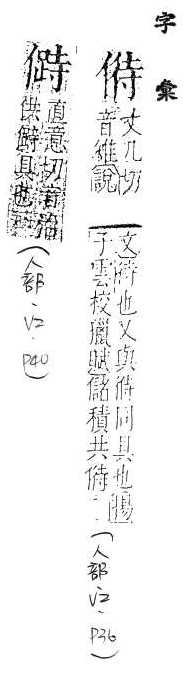 字彙
偫
丈几切
音雉說
文儲也又與偫同具也揚
子雲校獵賦儲積共偫
(人部、V2、P36)
直意切音治
供辟具也
(人部、V2、P40)